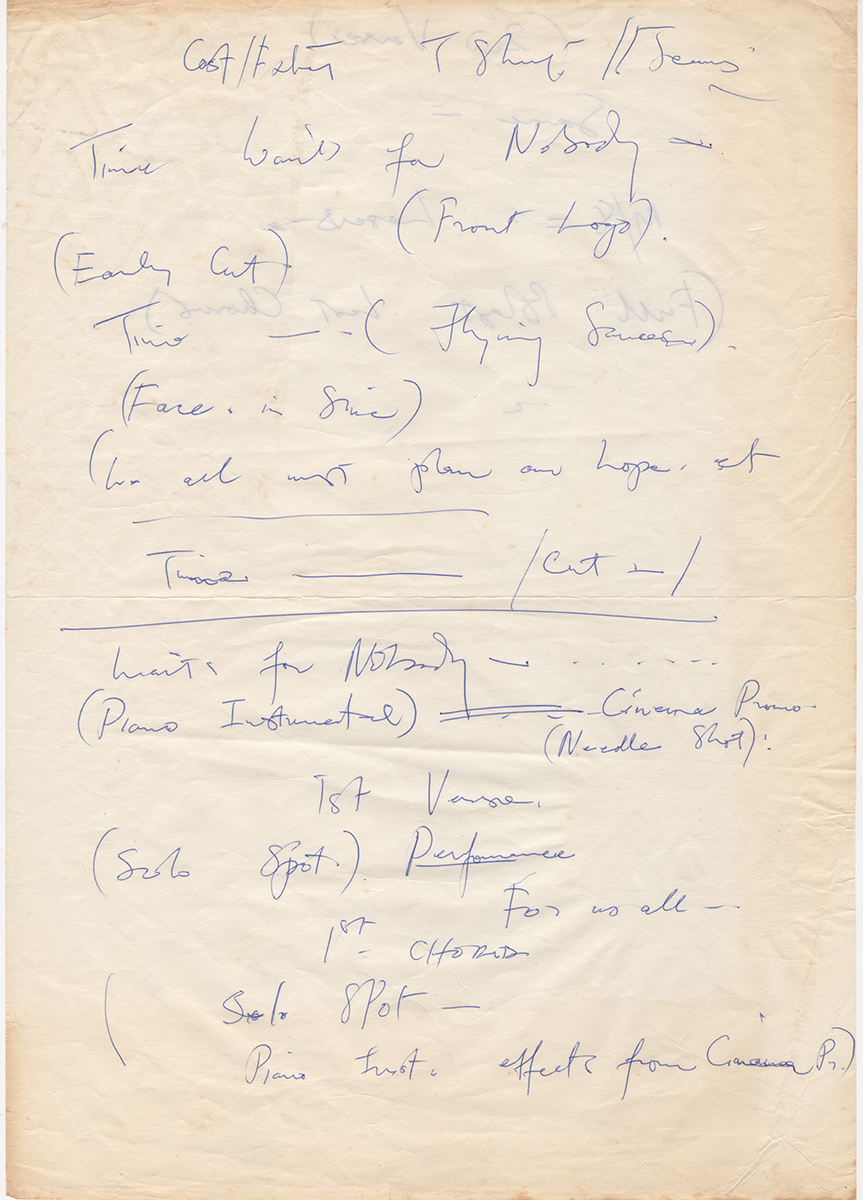 Cost/Extras T Shirt //Jeans
Time Waits for Nobody —
(Front Logo).
(Early Cut)
Time — - (Flying Saucers).
(Face. in
(We all must plan our hope. et
Time —— /Cut — /
Waits for Nobody — . . . . . .
(Piano Instrumental) —— Cinema Promo.
(Needle Shot):
1st Verse.
(Solo Spot.) Performance
For us all —
1st CHORUS
( Solo SPot —
Piano Inst. effects from Cinema Pr.)